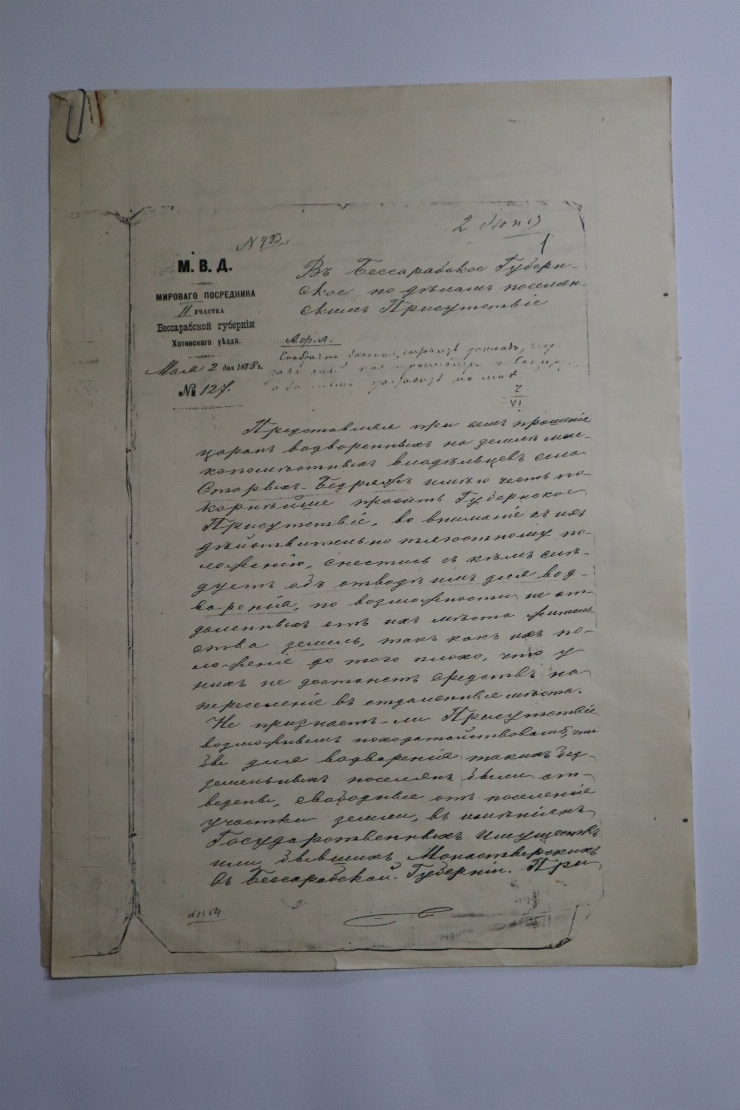 2 Июня
1
М. В. Д.
МИРОВАГО ПОСРЕДНИКА
II УЧАСТКА
Бессарабской губернiи
Хотинскаго уѣзда.
Мая 2 дня 1878 г.
№ 127.
Въ Бессарабское Губерн-
ское по дѣламъ поселян-
скимъ Присутствiе
Представляя при семъ прошенiе
царанъ водворенныхъ на землѣ мел-
копомѣстныхъ владѣльцевъ села
Старыхъ-Бедражъ имѣю честь по-
корнѣйше просить Губернское
Присутствiе, во вниманiе къ ихъ
дѣйствительно тягостному по-
ложенiю, снестись съ кѣмъ слѣ-
дуетъ объ отводѣ имъ для вод-
воренiя, по возможности не от-
даленныхъ отъ ихъ мѣста житель
ства земель, такъ какъ ихъ по-
ложенiе до того плохо, что у
нихъ не достанетъ средствъ на
переселенiе въ отдаленныя мѣста.
Не признаетъ-ли Присутствiе
возможнымъ походатайствовать что
бы для водворенiя такихъ без-
земельныхъ поселянъ были от-
ведены, свободные отъ поселенiя
участки земли, въ имѣнiяхъ
Государственныхъ Имуществъ
или бывшихъ Монастырскихъ
въ Бессарабской Губернiи. При